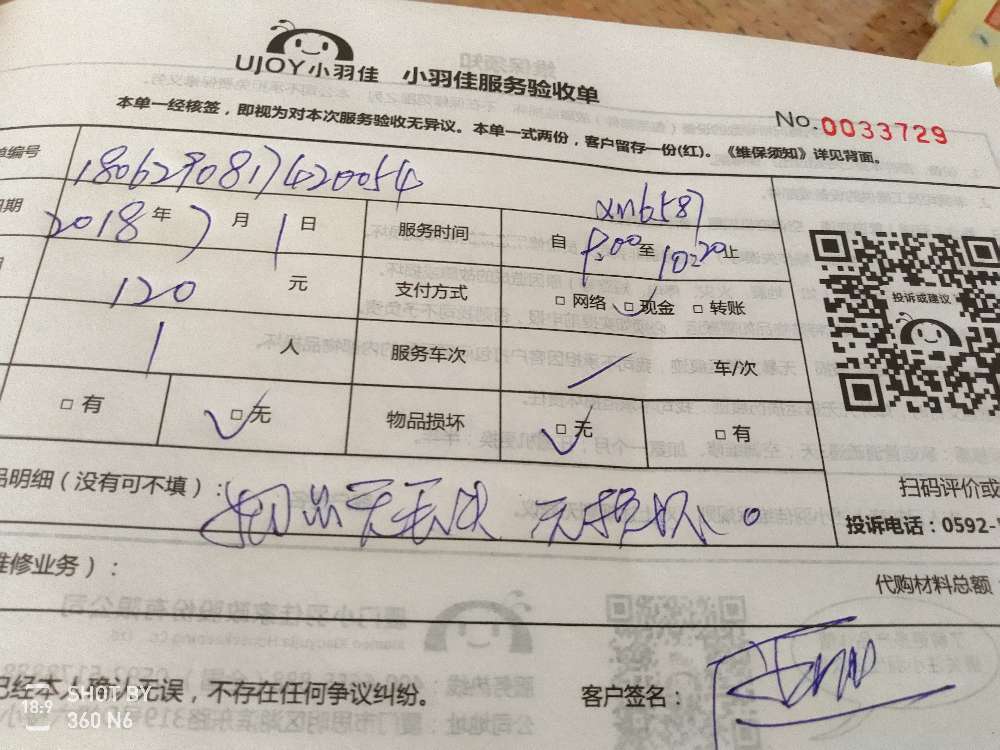 UJOY小羽佳 小羽佳服务验收单
本单一经核签，即视为对本次服务验收无异议。本单一式两份，客户留存一份(红)。《维保须知》详见背面。
No.0033729
单编号 1806290817420054
xm6587
期 2018年7月1日 服务时间 自 8:00 至 10:20 止
120 元 支付方式 □ 网络 □ 现金 □ 转账
1 人 服务车次 / 车/次
□ 有 □ 无 物品损坏 □ 无 □ 有
投诉或建议
品明细（没有可不填）：
扫码评价或
投诉电话：0592-
维修业务）：
代购材料总额
已经本人确认无误，不存在任何争议纠纷。 客户签名：
SHOT BY
360 N6
18:9